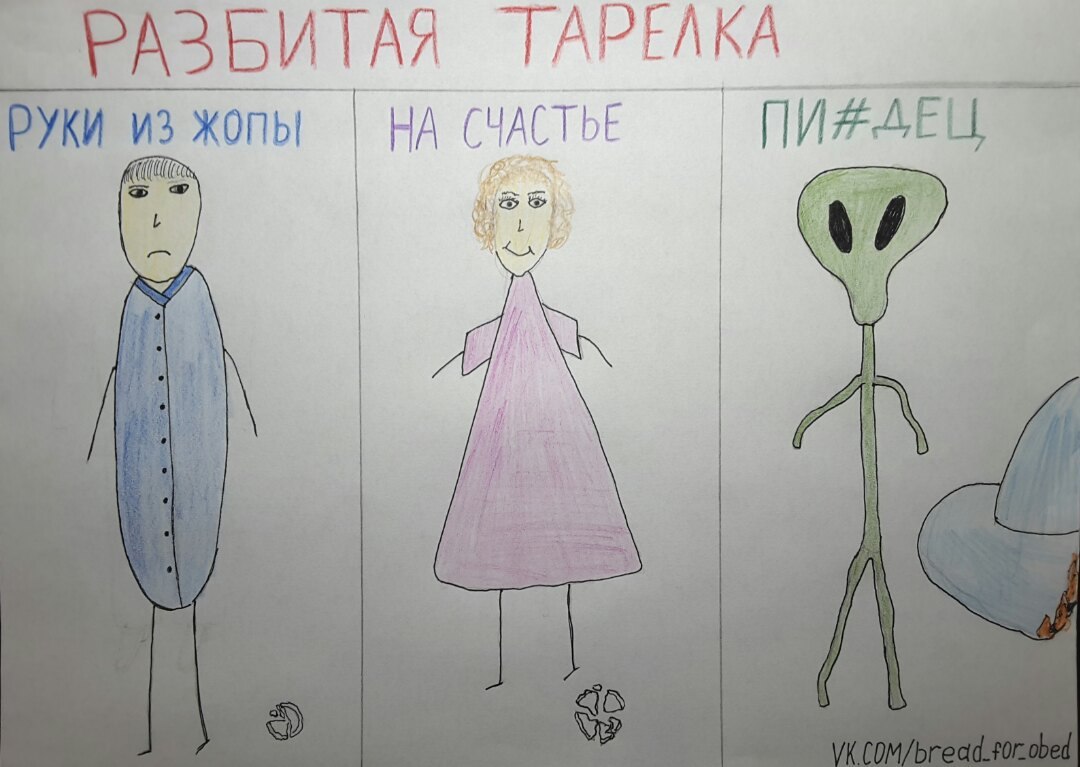 РАЗБИТАЯ ТАРЕЛКА
РУКИ ИЗ ЖОПЫ
НА СЧАСТЬЕ
ПИ#ДЕЦ
VK.COM/bread_for_obed